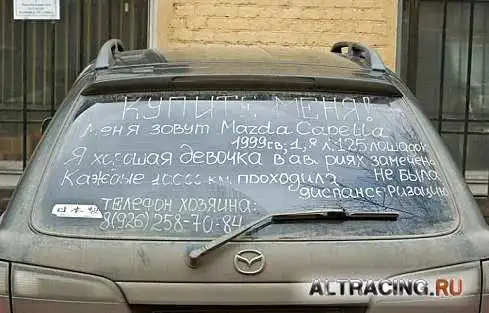 КУПИТЕ МЕНЯ!
Меня зовут Mazda Capella
1999г.в., 1,8 л. 125 лошадок
Я хорошая девочка в авариях замечена
не была
Каждые 10000 км. проходила
диспансеризацию
ТЕЛЕФОН ХОЗЯИНА:
8(926)258-70-84
日本製
ALTRACING.RU